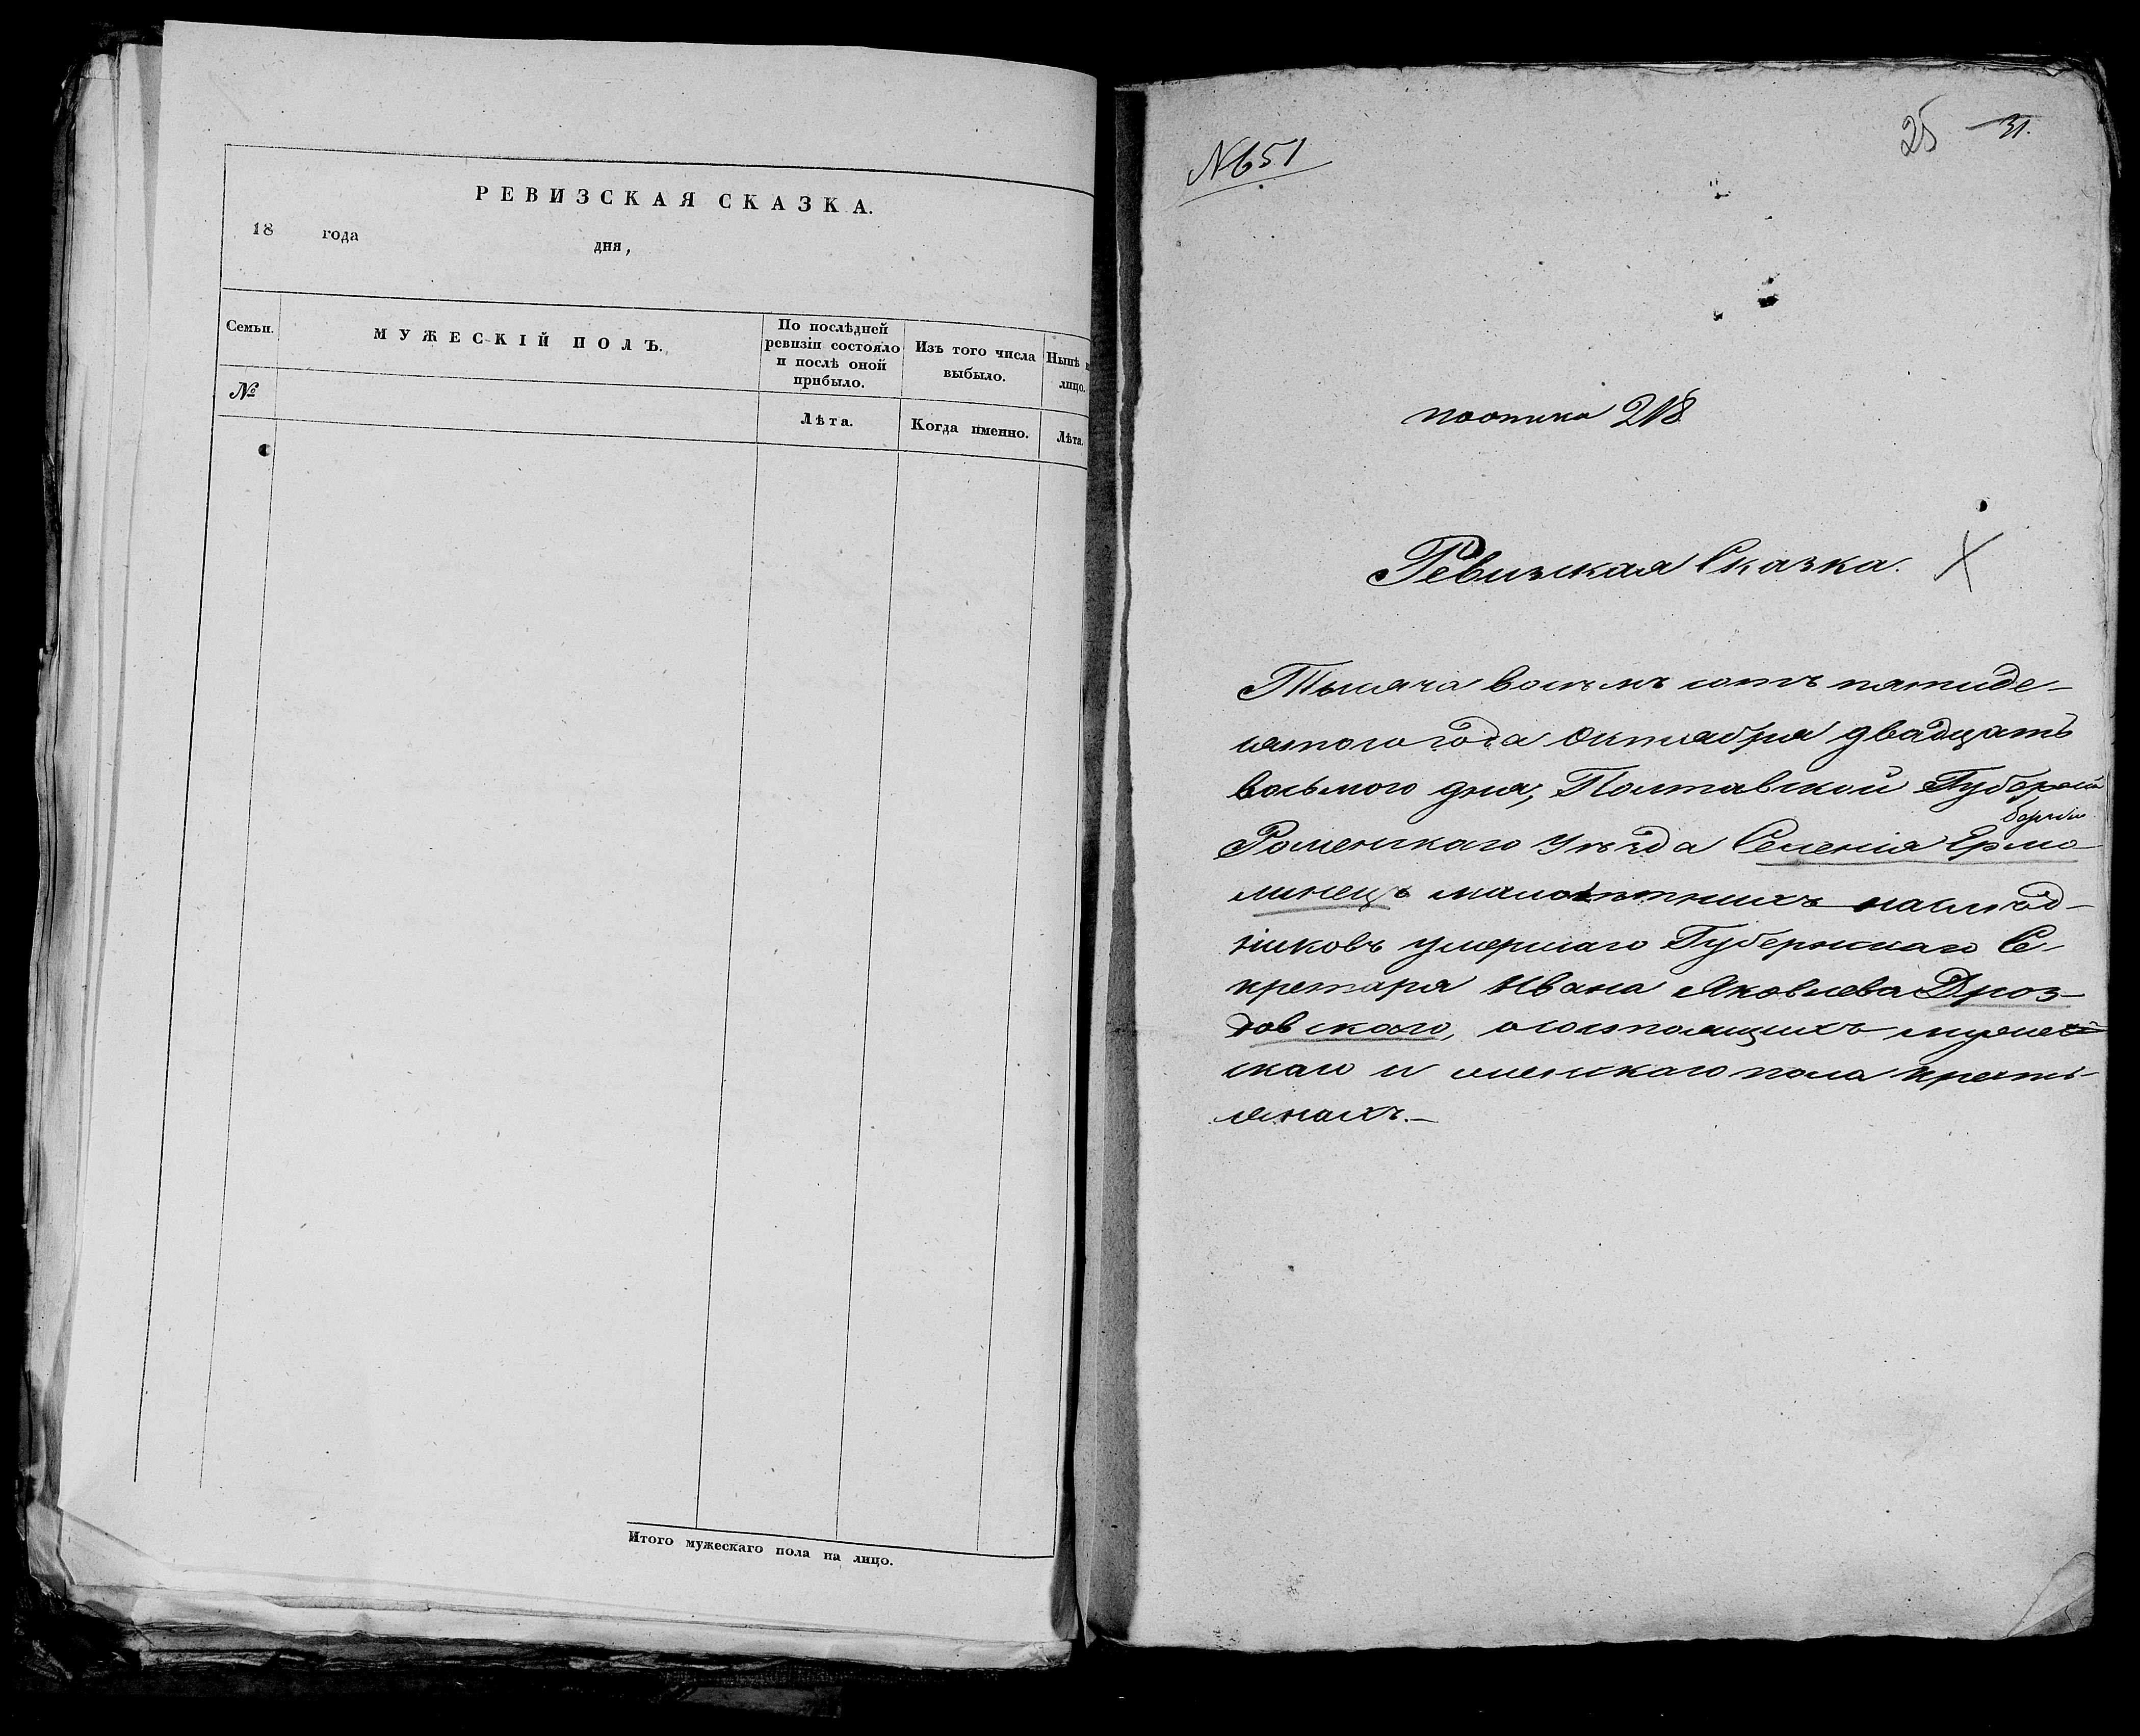 РЕВИЗСКАЯ СКАЗКА.
18 года дня,
Семьи.
МУЖЕСКІЙ ПОЛЪ.
По послѣдней
ревизіи состояло
и послѣ оной
прибыло.
Изъ того числа
выбыло.
Нынѣ
лицо.
№
Лѣта.
Когда именно.
Лѣта.
Итого мужескаго пола на лицо.
№ 651
25 31.
218
Ревизская Сказка. X
Тысяча восемь сотъ пятиде-
сятого года Октября двадцать
восьмого дня, Полтавской Губерніи
Роменскаго Уѣзда Селенія Ермо-
линецъ малолѣтнихъ наслѣд-
никовъ умершаго Губернскаго Се-
кретаря Ивана Яковлева Дроз-
довскаго, о состоящихъ муже-
скаго и женскаго пола кресть-
янахъ.—